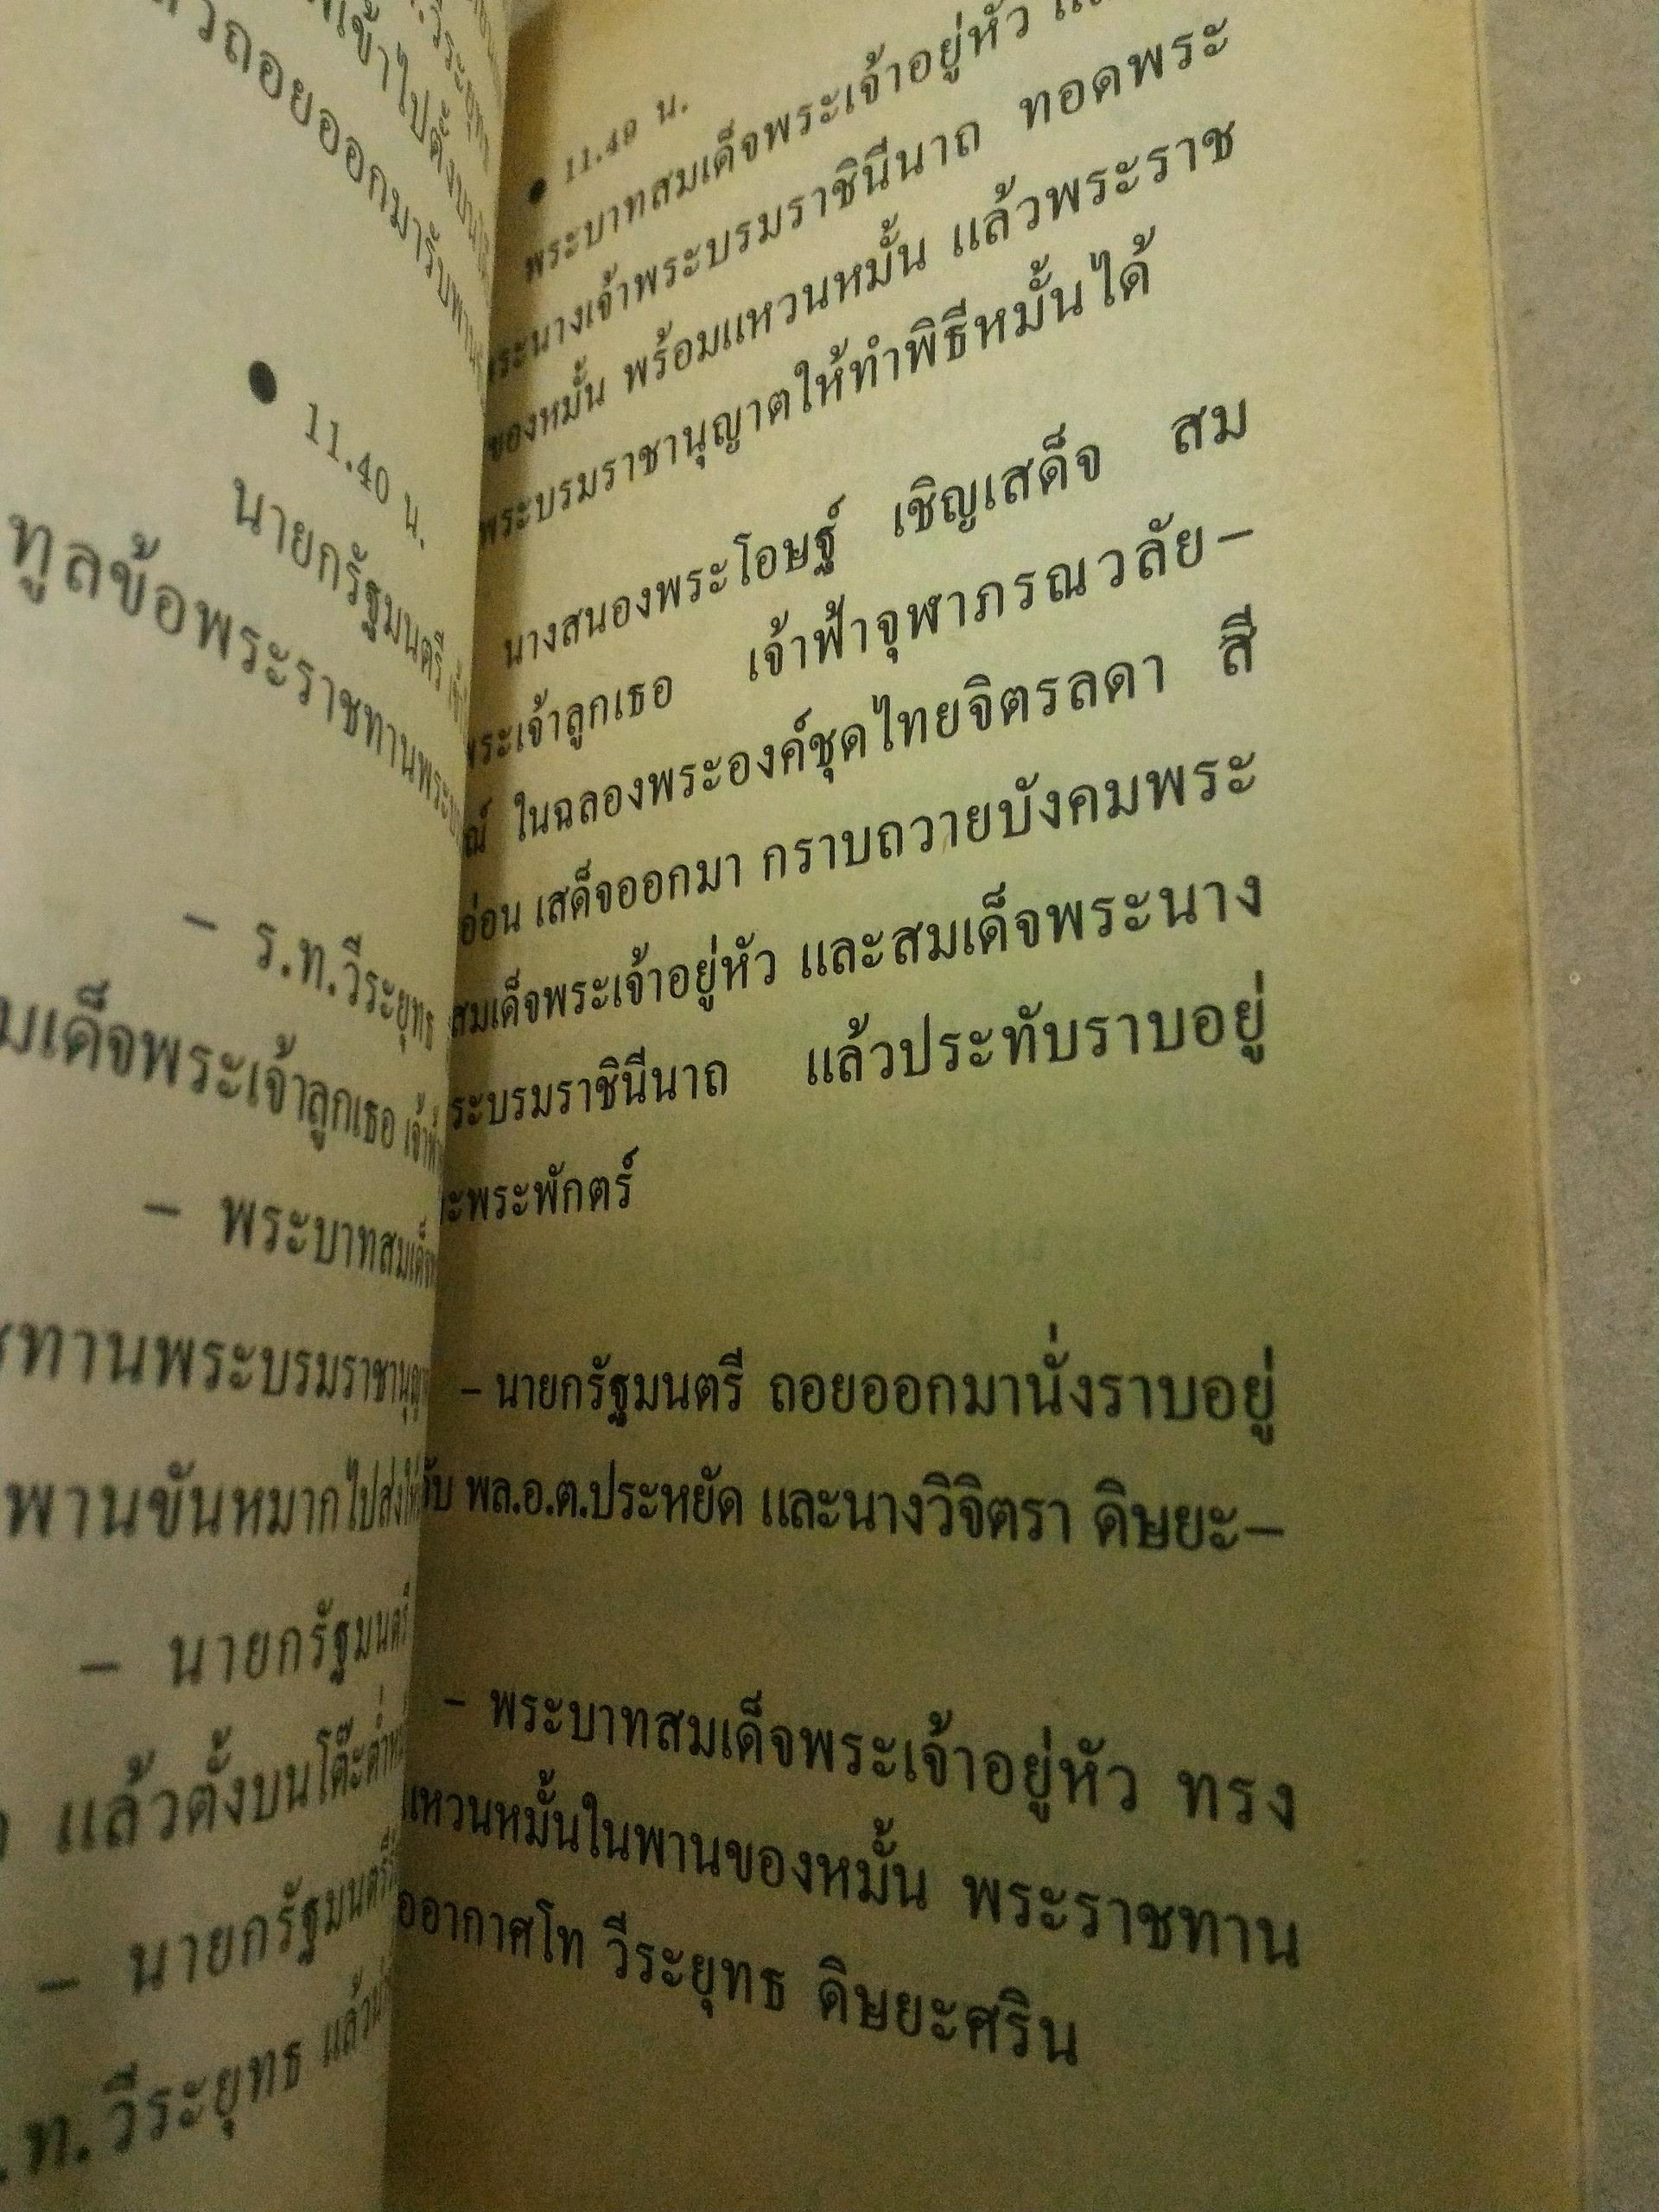 วถอยออกมารับพาน
● 11.40 น.
นายกรัฐมนตรี
ทูลข้อพระราชทานพระ
– ร.ท.วีระยุทธ
มเด็จพระเจ้าลูกเธอ เจ้าฟ้า
– พระบาทสมเด็จ
ทานพระบรมราชานุญา
พานขันหมากไปส่งให้
– นายกรัฐมนตรี
แล้วตั้งบนโต๊ะต่ำ
– นายกรัฐมนตรี
.ท.วีระยุทธ แล้ว
● 11.49 น.
พระบาทสมเด็จพระเจ้าอยู่หัว
ระนางเจ้าพระบรมราชินีนาถ ทอดพระ
ของหมั้น พร้อมแหวนหมั้น แล้วพระราช
พระบรมราชานุญาตให้ทำพิธีหมั้นได้
นางสนองพระโอษฐ์ เชิญเสด็จ สม
พระเจ้าลูกเธอ เจ้าฟ้าจุฬาภรณวลัย–
ณ์ ในฉลองพระองค์ชุดไทยจิตรลดา สี
อ่อน เสด็จออกมา กราบถวายบังคมพระ
สมเด็จพระเจ้าอยู่หัว และสมเด็จพระนาง
ระบรมราชินีนาถ แล้วประทับราบอยู่
ะพระพักตร์
– นายกรัฐมนตรี ถอยออกมานั่งราบอยู่
ับ พล.อ.ต.ประหยัด และนางวิจิตรา ดิษยะ–
– พระบาทสมเด็จพระเจ้าอยู่หัว ทรง
แหวนหมั้นในพานของหมั้น พระราชทาน
ออากาศโท วีระยุทธ ดิษยะศริน